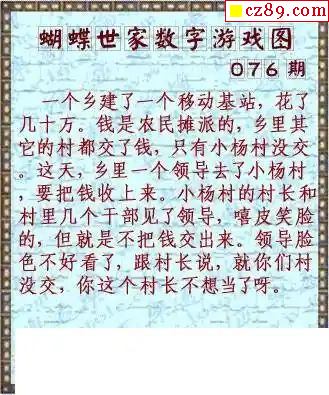 cz89.com
蝴蝶世家数字游戏图
076期
一个乡建了一个移动基站，花了
几十万。钱是农民摊派的，乡里其
它的村都交了钱，只有小杨村没交
。这天，乡里一个领导去了小杨村
，要把钱收上来。小杨村的村长和
村里几个干部见了领导，嘻皮笑脸
的，但就是不把钱交出来。领导脸
色不好看了，跟村长说，就你们村
没交，你这个村长不想当了呀。